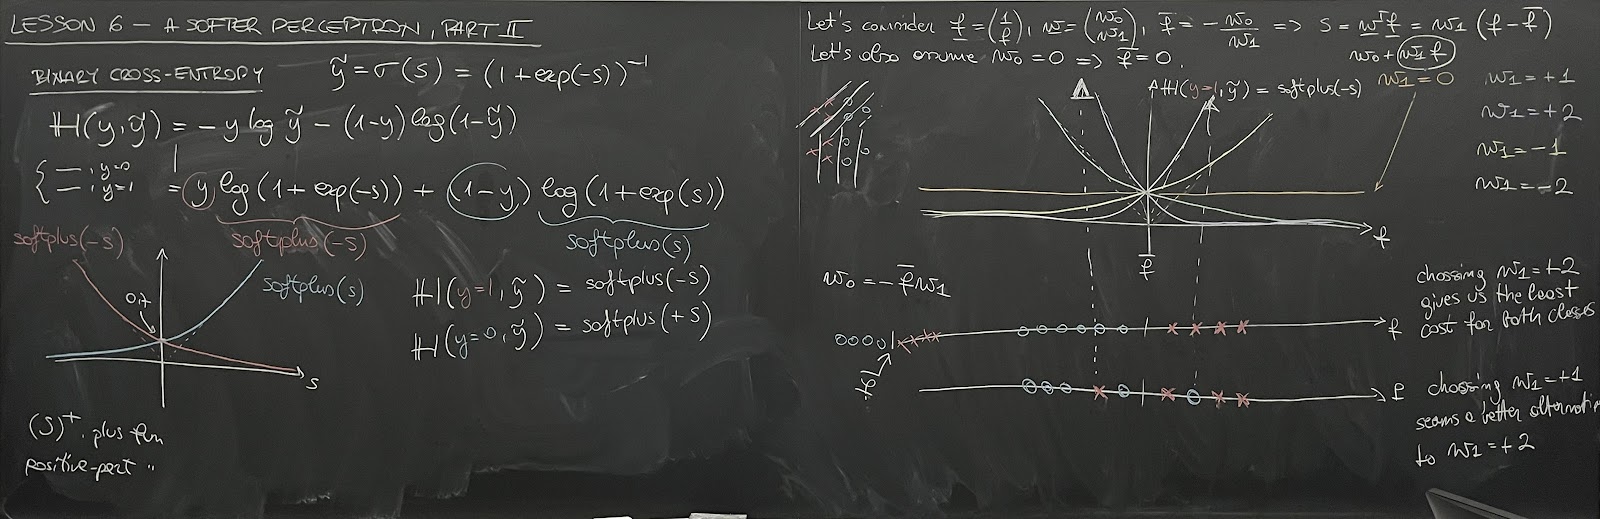 LESSON 6 – A SOFTER PERCEPTRON, PART II
BINARY CROSS-ENTROPY
ỹ = σ(s) = (1+exp(-s))⁻¹
ℍ(y,ỹ) = -y log ỹ - (1-y) log(1-ỹ)
{ — , y=0
— , y=1
= y log(1+exp(-s)) + (1-y) log(1+exp(s))
softplus(-s)
softplus(s)
softplus(-s)
softplus(s)
0.7
s
ℍ(y=1,ỹ) = softplus(-s)
ℍ(y=0,ỹ) = softplus(+s)
(s)⁺, plus fun
positive-part "
Let's consider f = (1 f), w = (w0 w1), f̄ = -w0/w1 => s = wᵀf = w1 (f - f̄)
Let's also assume w0 = 0 => f̄ = 0.
w0 + w1 f
ℍ(y=1,ỹ) = softplus(-s)
w1 = 0
w1 = +1
w1 = +2
w1 = -1
w1 = -2
f
f̄
w0 = -f̄ w1
f
f̄
f
choosing w1=+2
gives us the least
cost for both classes
choosing w1=+1
seams a better
to w1=+2